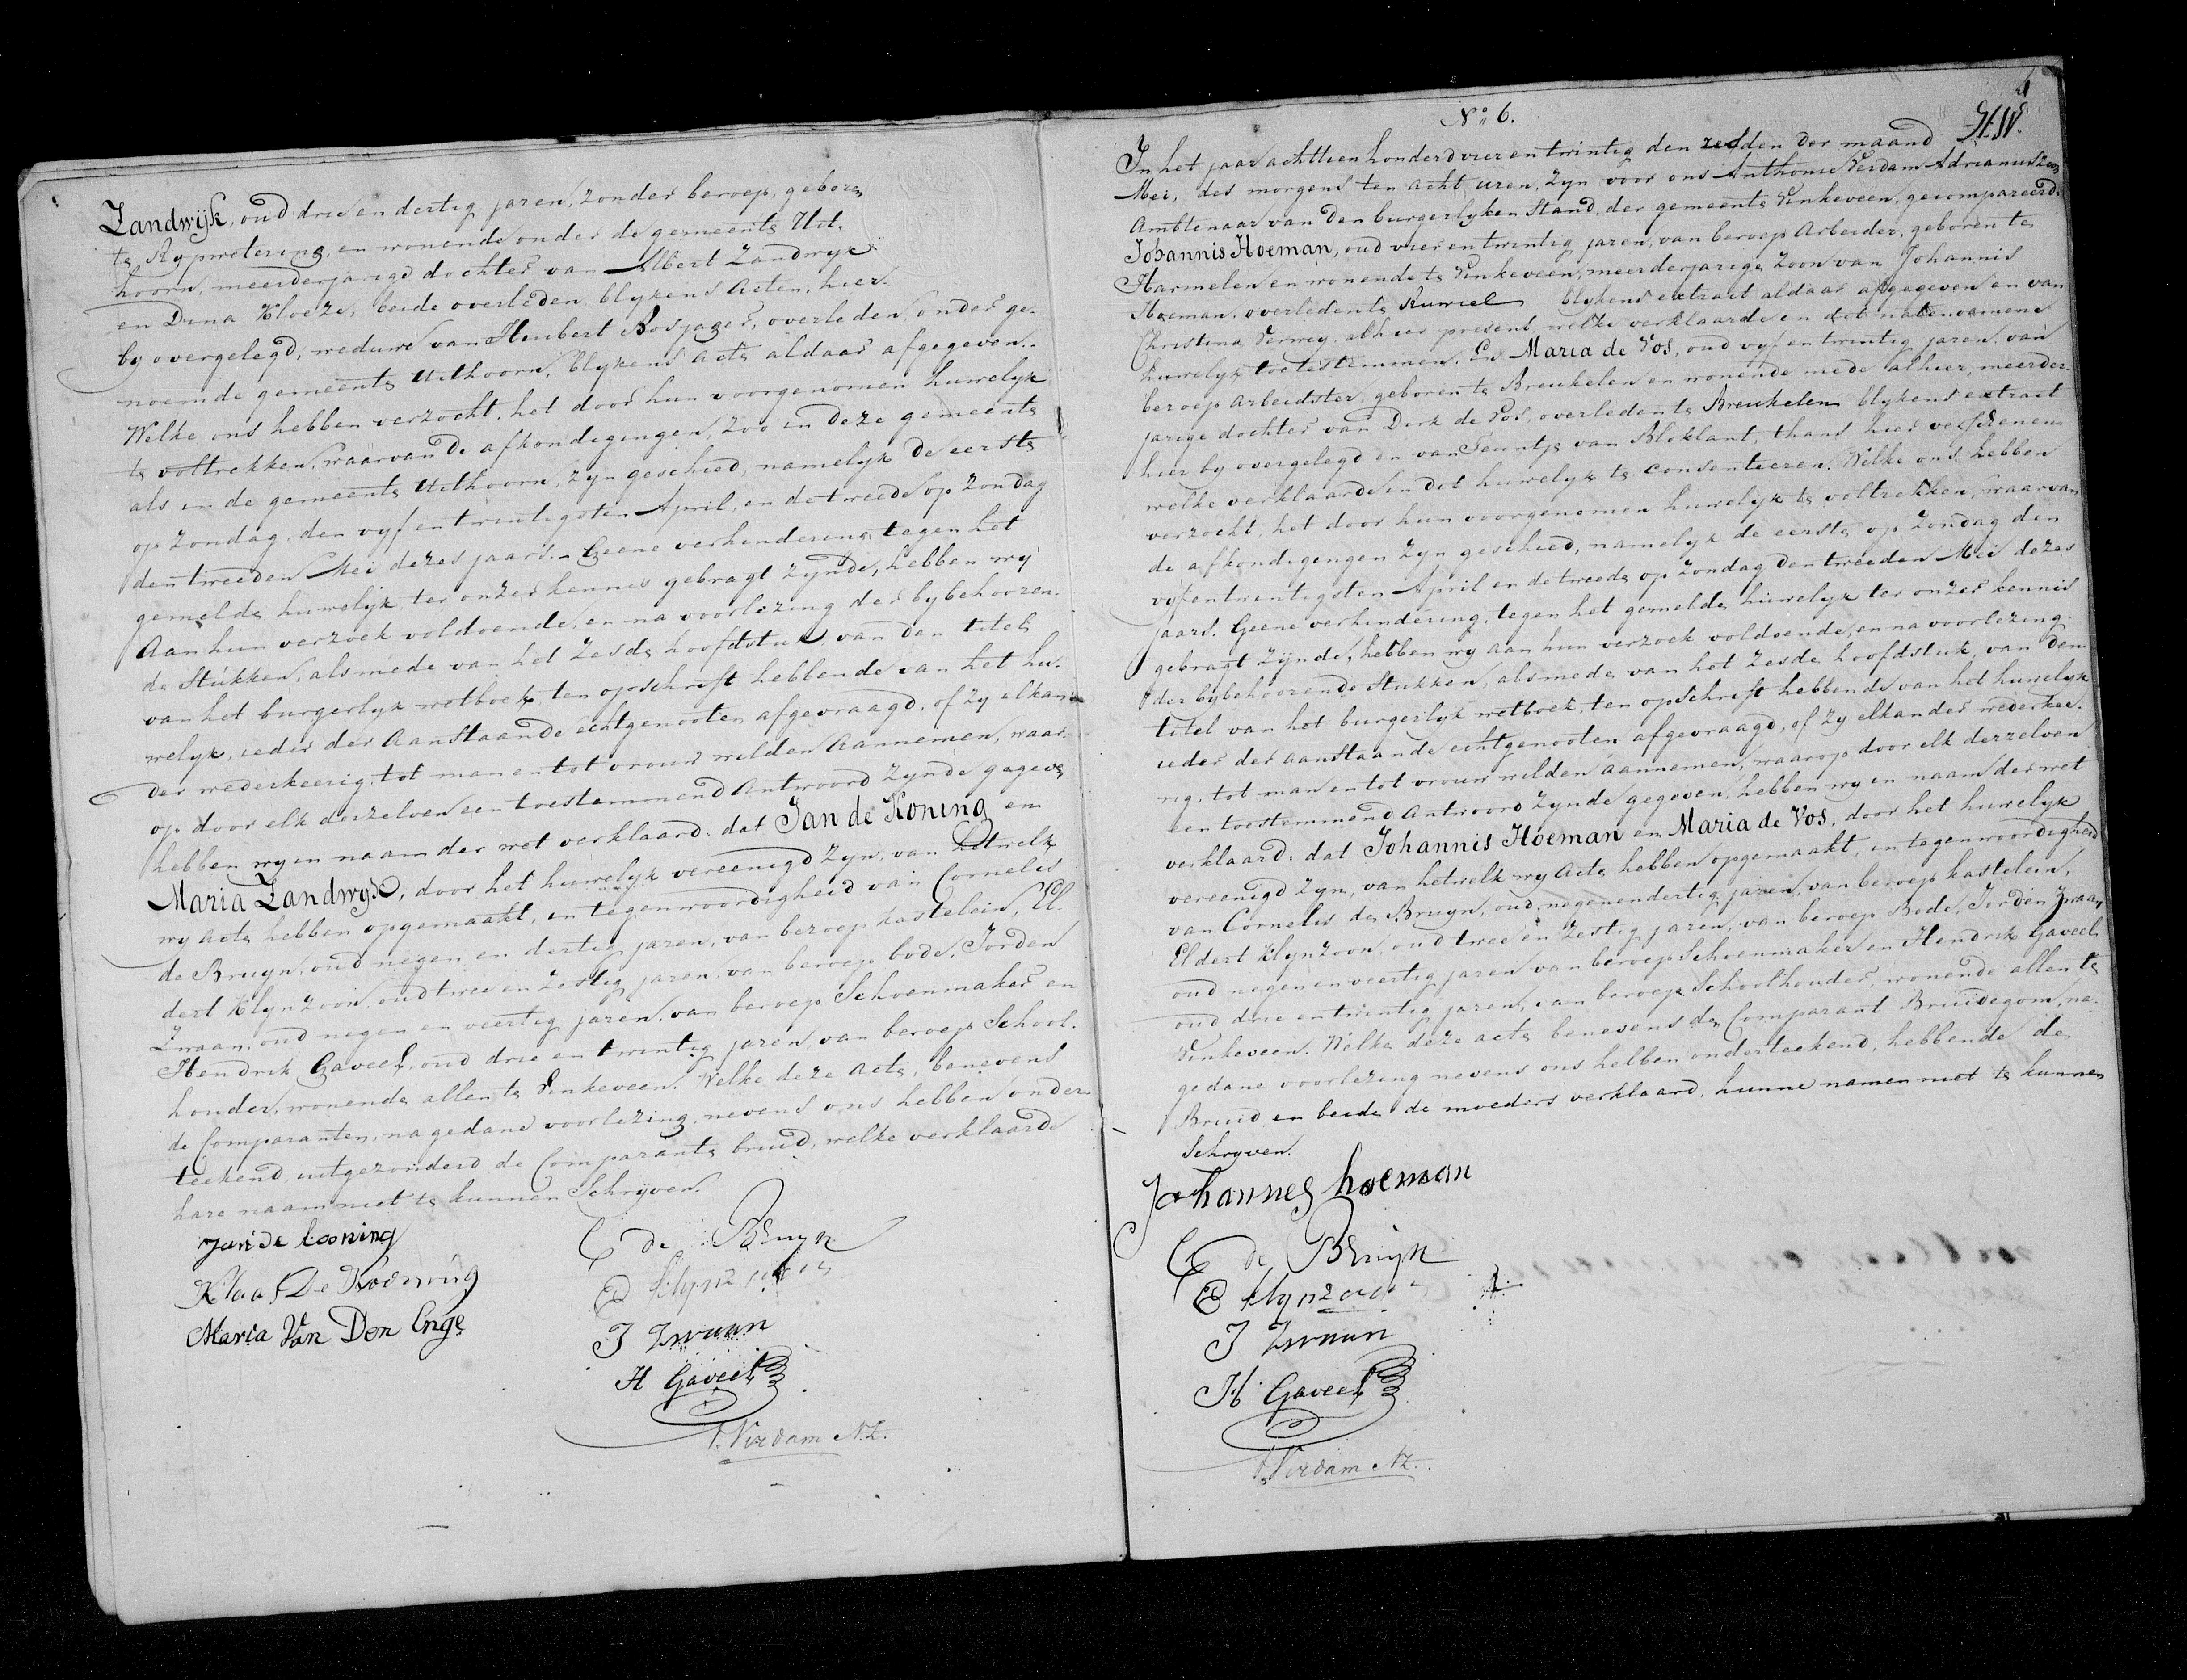 Zandwijk, oud drie en dertig jaren, zonder beroep, geboren
te Rypwetering, en wonende onder de gemeente Uit-
hoorn, meerderjarige dochter van Albert Zandwyk
en Dina Kloeze, beide overleden, blykens acten, hier-
by overgelegd; weduwe van Huibert Bosjager, overleden, onder ge-
noemde gemeente Uithoorn, blykens acte aldaar afgegeven.
Welke ons hebben verzocht, het door hun voorgenomen huwelyk
te voltrekken, waarvan de afkondigingen, zoo in deze gemeente
als in de gemeente Uithoorn, zyn geschied, namelyk de eerste
op Zondag, den vyf en twintigsten April, en de tweede op Zondag
den tweeden Mei dezes jaars. Geene verhindering tegen het
gemelde huwelyk, ter onzer kennis gebragt zynde, hebben wy
aan hun verzoek voldoende, en na voorlezing der bybehooren-
de Stukken, alsmede van het zesde hoofdstuk, van den titel
van het burgerlyk wetboek, ten opschrift hebbende van het hu-
welyk, ieder der aanstaande echtgenooten afgevraagd, of zy elkan-
der wederkeerig, tot man en tot vrouw wilden aannemen, waar-
op door elk derzelven een toestemmend antwoord zynde gegeven
hebben wy in naam der wet verklaard, dat Jan de Koning en
Maria Zandwyk, door het huwelyk vereenigd zyn, van hetwelk
wy acte hebben opgemaakt, in tegenwoordigheid van Cornelis
de Bruyn, oud negen en dertig jaren, van beroep kastelein, El-
dert Klynzoon, oud twee en zestig jaren, van beroep bode, Jorden
Zwaan, oud negen en veertig jaren, van beroep Schoenmaker en
Hendrik Gaveel, oud drie en twintig jaren, van beroep School-
houder, wonende allen te Vinkeveen. Welke deze acte, benevens
de Comparanten, na gedane voorlezing, nevens ons hebben onder-
teekend, uitgezonderd de Comparante bruid, welke verklaarde
hare naam niet te kunnen Schryven.
Jan de kooning
Klaas De Kooning
Maria Van Den Enge
C de Bruyn
E Klynzoon
J Zwaan
H Gaveel
A. Verdam Az.
No. 6.
In het jaar achttienhonderd vier en twintig den zesden der maand
Mei, des morgens ten acht uren, zyn voor ons Anthonie Verdam Adrianuszoon
Ambtenaar van den burgerlyken Stand, der gemeente Vinkeveen, gecompareerd
Johannis Hoeman, oud vier en twintig jaren, van beroep Arbeider, geboren te
Harmelen en wonende te Vinkeveen, meerderjarige Zoon van Johannis
Hoeman, overleden te Ruwiel blykens extract aldaar afgegeven en van
Christina Verwey, alhier present, welke verklaarde in dit natenoemene
huwelyk toetestemmen. En Maria de Vos, oud vyf en twintig jaren, van
beroep arbeidster, geboren te Breukelen en wonende mede alhier, meerder-
jarige dochter van Dirk de Vos, overleden te Breukelen blykens extract
hier by overgelegd en van Teuntje van Bloklant, thans hier verschenen
welke verklaarde in dit huwelyk te consenteeren. Welke ons hebben
verzocht, het door hun voorgenomen huwelyk te voltrekken, waarvan
de afkondigingen zyn geschied, namelyk de eerste op Zondag den
vyfentwintigsten April en de tweede op Zondag den tweeden Mei dezes
jaars. Geene verhindering, tegen het gemelde huwelyk ter onzer kennis
gebragt zynde, hebben wy aan hun verzoek voldoende, en na voorlezing
der bybehoorende Stukken, alsmede van het zesde hoofdstuk, van den
titel van het burgerlyk wetboek, ten opschrift hebbende van het huwelyk
ieder der aanstaande echtgenooten afgevraagd, of zy elkander wederkee-
rig, tot man en tot vrouw wilden aannemen, waarop door elk derzelven
een toestemmend antwoord zynde gegeven, hebben wy in naam der wet
verklaard, dat Johannis Hoeman en Maria de Vos, door het huwelyk
vereenigd zyn, van hetwelk wy acte hebben opgemaakt, in tegenwoordigheid
van Cornelis de Bruyn, oud negenendertig jaren, van beroep kastelein,
Eldert Klynzoon, oud twee en zestig jaren, van beroep Bode, Jorden Zwaan
oud negen en veertig jaren van beroep Schoenmaker en Hendrik Gaveel
oud drie en twintig jaren, van beroep Schoolhouder, wonende allen te
Vinkeveen. Welke deze acte benevens den Comparant Bruidegom, na
gedane voorlezing nevens ons hebben onderteekend, hebbende de
Bruid en beide de moeders verklaard, hunne namen niet te kunnen
Schryven.
Johannes hoeman
C de Bruyn
E Klynzoon
J Zwaan
H Gaveel
A. Verdam Az.